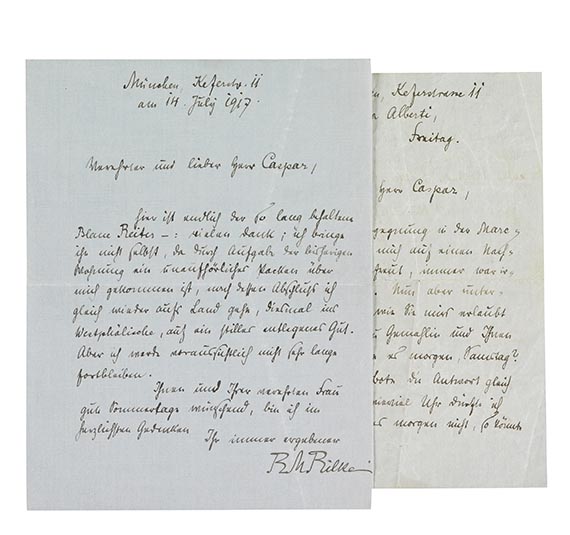 München, Keferstr. 11
am 14. July 1917.
Verehrter und lieber Herr Caspar,
hier ist endlich der so lang behaltene
Blaue Reiter –: vielen Dank; ich bringe
ihn nicht selbst, da durch Aufgabe der bisherigen
Wohnung ein unaufhörliches Packen über
mich gekommen ist, nach dessen Abschluss ich
gleich wieder aufs Land gehe, diesmal ins
Westphälische, auf ein stilles entlegenes Gut.
Aber ich werde voraussichtlich nicht sehr lange
fortbleiben.
Ihnen und Ihrer verehrten Frau
gute Sommertage wünschend, bin ich im
herzlichsten Gedenken
Ihr immer ergebener
RMRilke
Keferstrasse 11
Alberti,
Freitag.
Herr Caspar,
in der Marc-
mich auf einen Nach-
immer war ir-
Nun aber unter-
wie Sie mirs erlaubt
Gemahlin und Ihnen
es morgen, Samstag?
die Antwort gleich
Uhr dürfte ich
es morgen nicht, so könnte